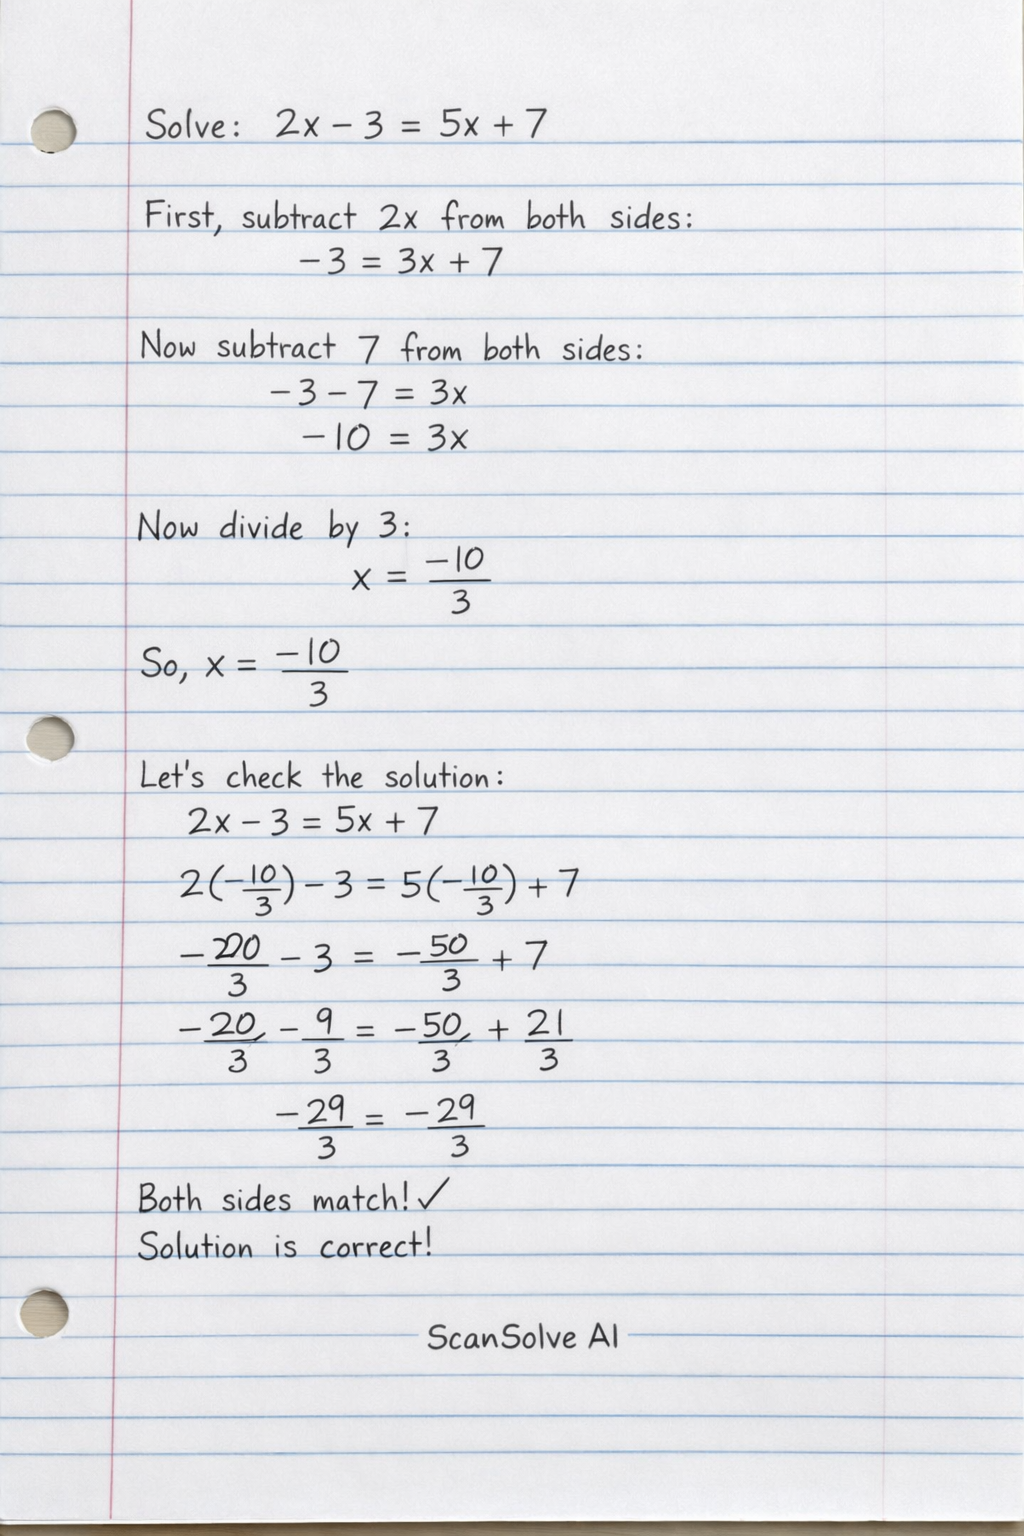 Solve: 2x − 3 = 5x + 7
First, subtract 2x from both sides:
−3 = 3x + 7
Now subtract 7 from both sides:
−3 − 7 = 3x
−10 = 3x
Now divide by 3:
x = −10/3
So, x = −10/3
Let's check the solution:
2x − 3 = 5x + 7
2(−10/3) − 3 = 5(−10/3) + 7
−20/3 − 3 = −50/3 + 7
−20/3 − 9/3 = −50/3 + 21/3
−29/3 = −29/3
Both sides match! ✓
Solution is correct!
ScanSolve AI